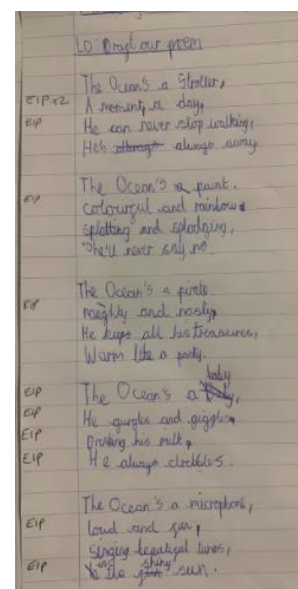 LO: Draft our poem
The Ocean's a Stroller,
EIP x2
A moment, a day,
EIP
He can never stop walking,
He's always away
The Ocean's a paint.
EIP
colourful and rainbow
splatting and splodging,
She'll never say no.
The Ocean's a pirate.
EIP
naughty and nasty,
He keeps all his treasures,
Warm like a party.
EIP
The Ocean's a baby,
EIP
He gurgles and giggles,
EIP
his milk,
EIP
He always
The Ocean's a microphone,
EIP
loud and fun,
singing beautiful tunes,
EIP
in the shiny sun.